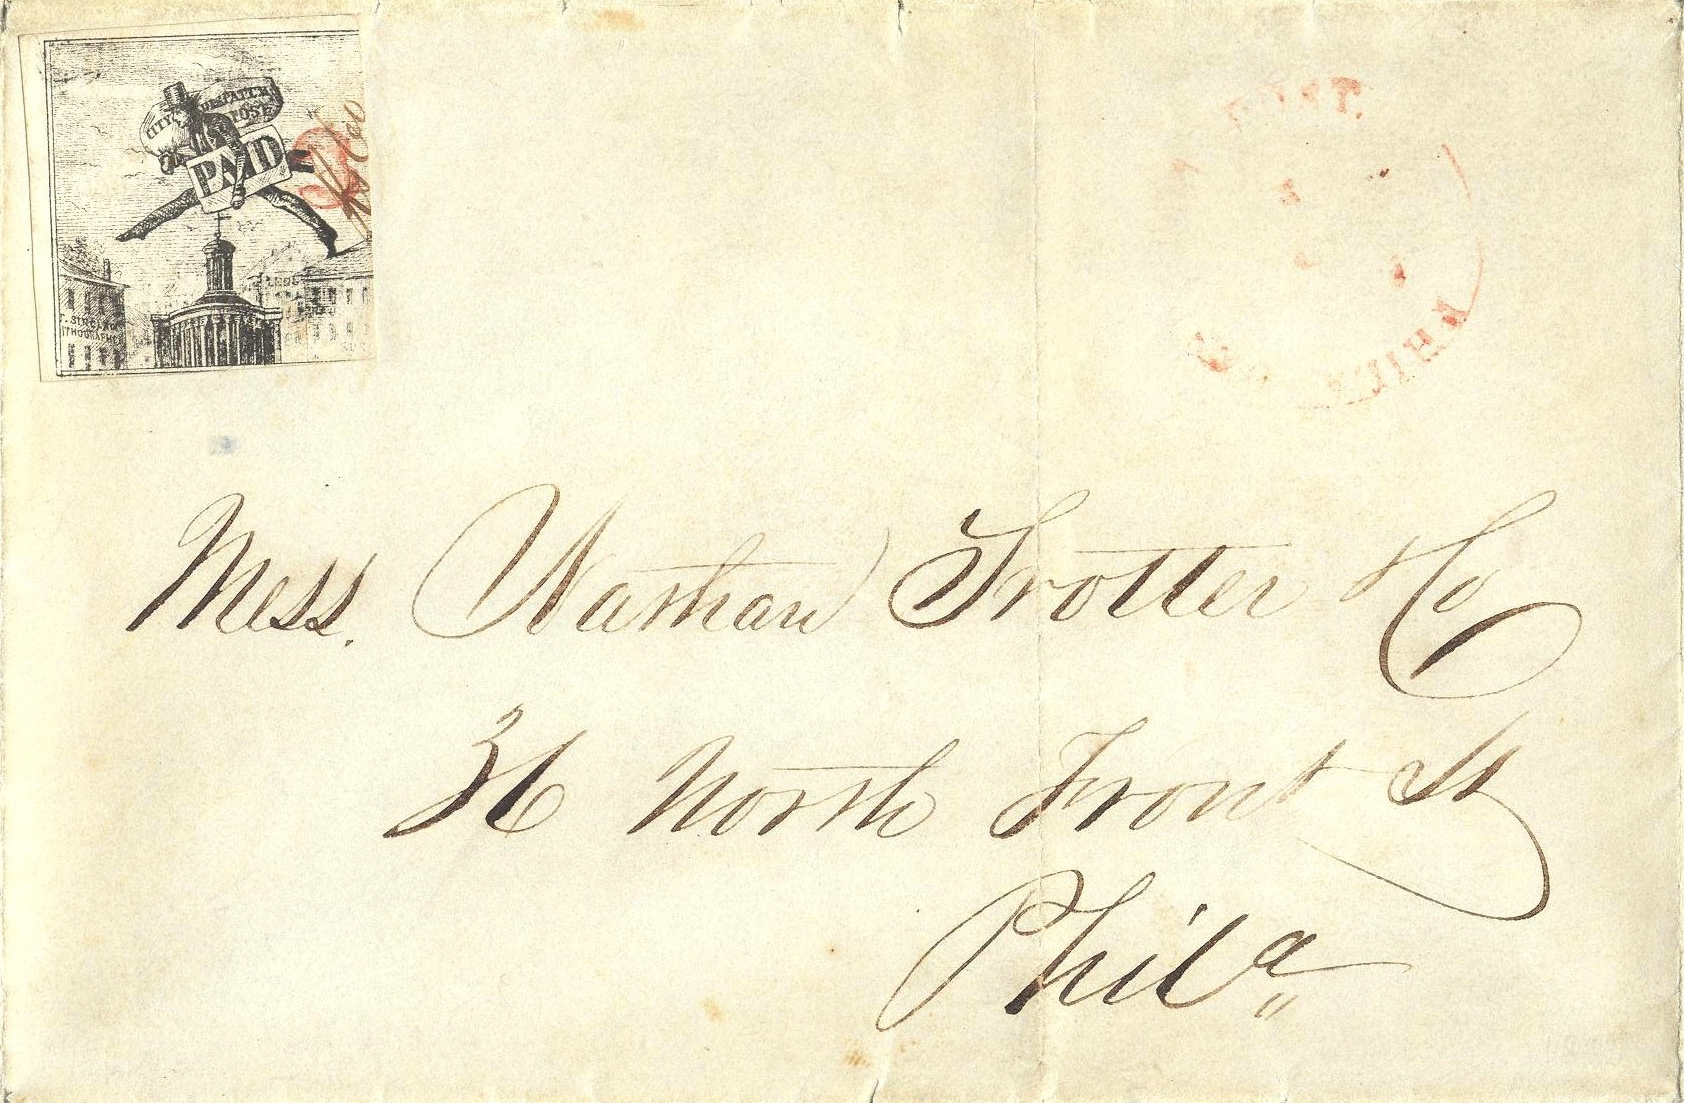 CITY DESPATCH
POST
PAID
POST.
PHILA
Mess. Nathan Trotter & Co
36 North Front St
Phila